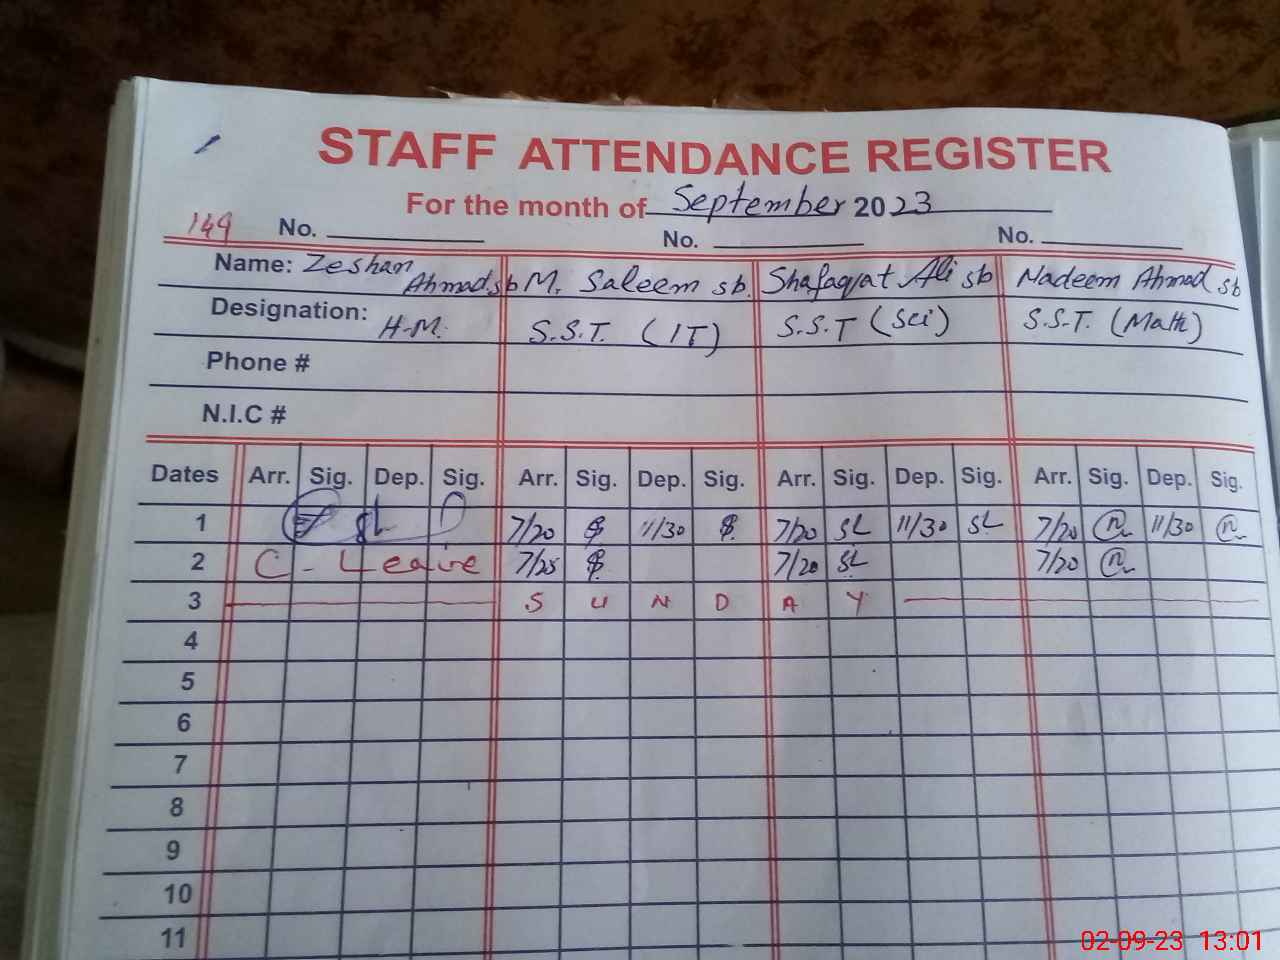 STAFF ATTENDANCE REGISTER
For the month of September 2023
149 No. No. No.
Name: Zeshan Ahmad sb M. Saleem sb. Shafaqat Ali sb Nadeem Ahmad sb
Designation: H.M. S.S.T. (IT) S.S.T (Sci) S.S.T. (Math)
Phone #
N.I.C #
Dates Arr. Sig. Dep. Sig. Arr. Sig. Dep. Sig. Arr. Sig. Dep. Sig. Arr. Sig. Dep. Sig.
1 7/20 11/30 7/20 SL 11/30 SL 7/20 11/30
2 C - Leave 7/25 7/20 SL 7/20
3 S U N D A Y
4
5
6
7
8
9
10
11
02-09-23 13:01